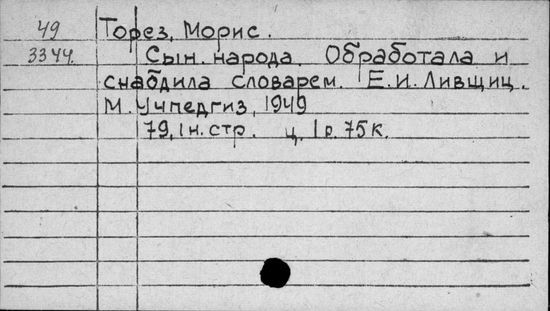 49 Торез, Морис.
3344. Сын народа. Обработала и
снабдила словарем. Е.И. Лившиц.
М. Учпедгиз, 1949
79, 1 н. стр. ц. 1 р. 75 к.